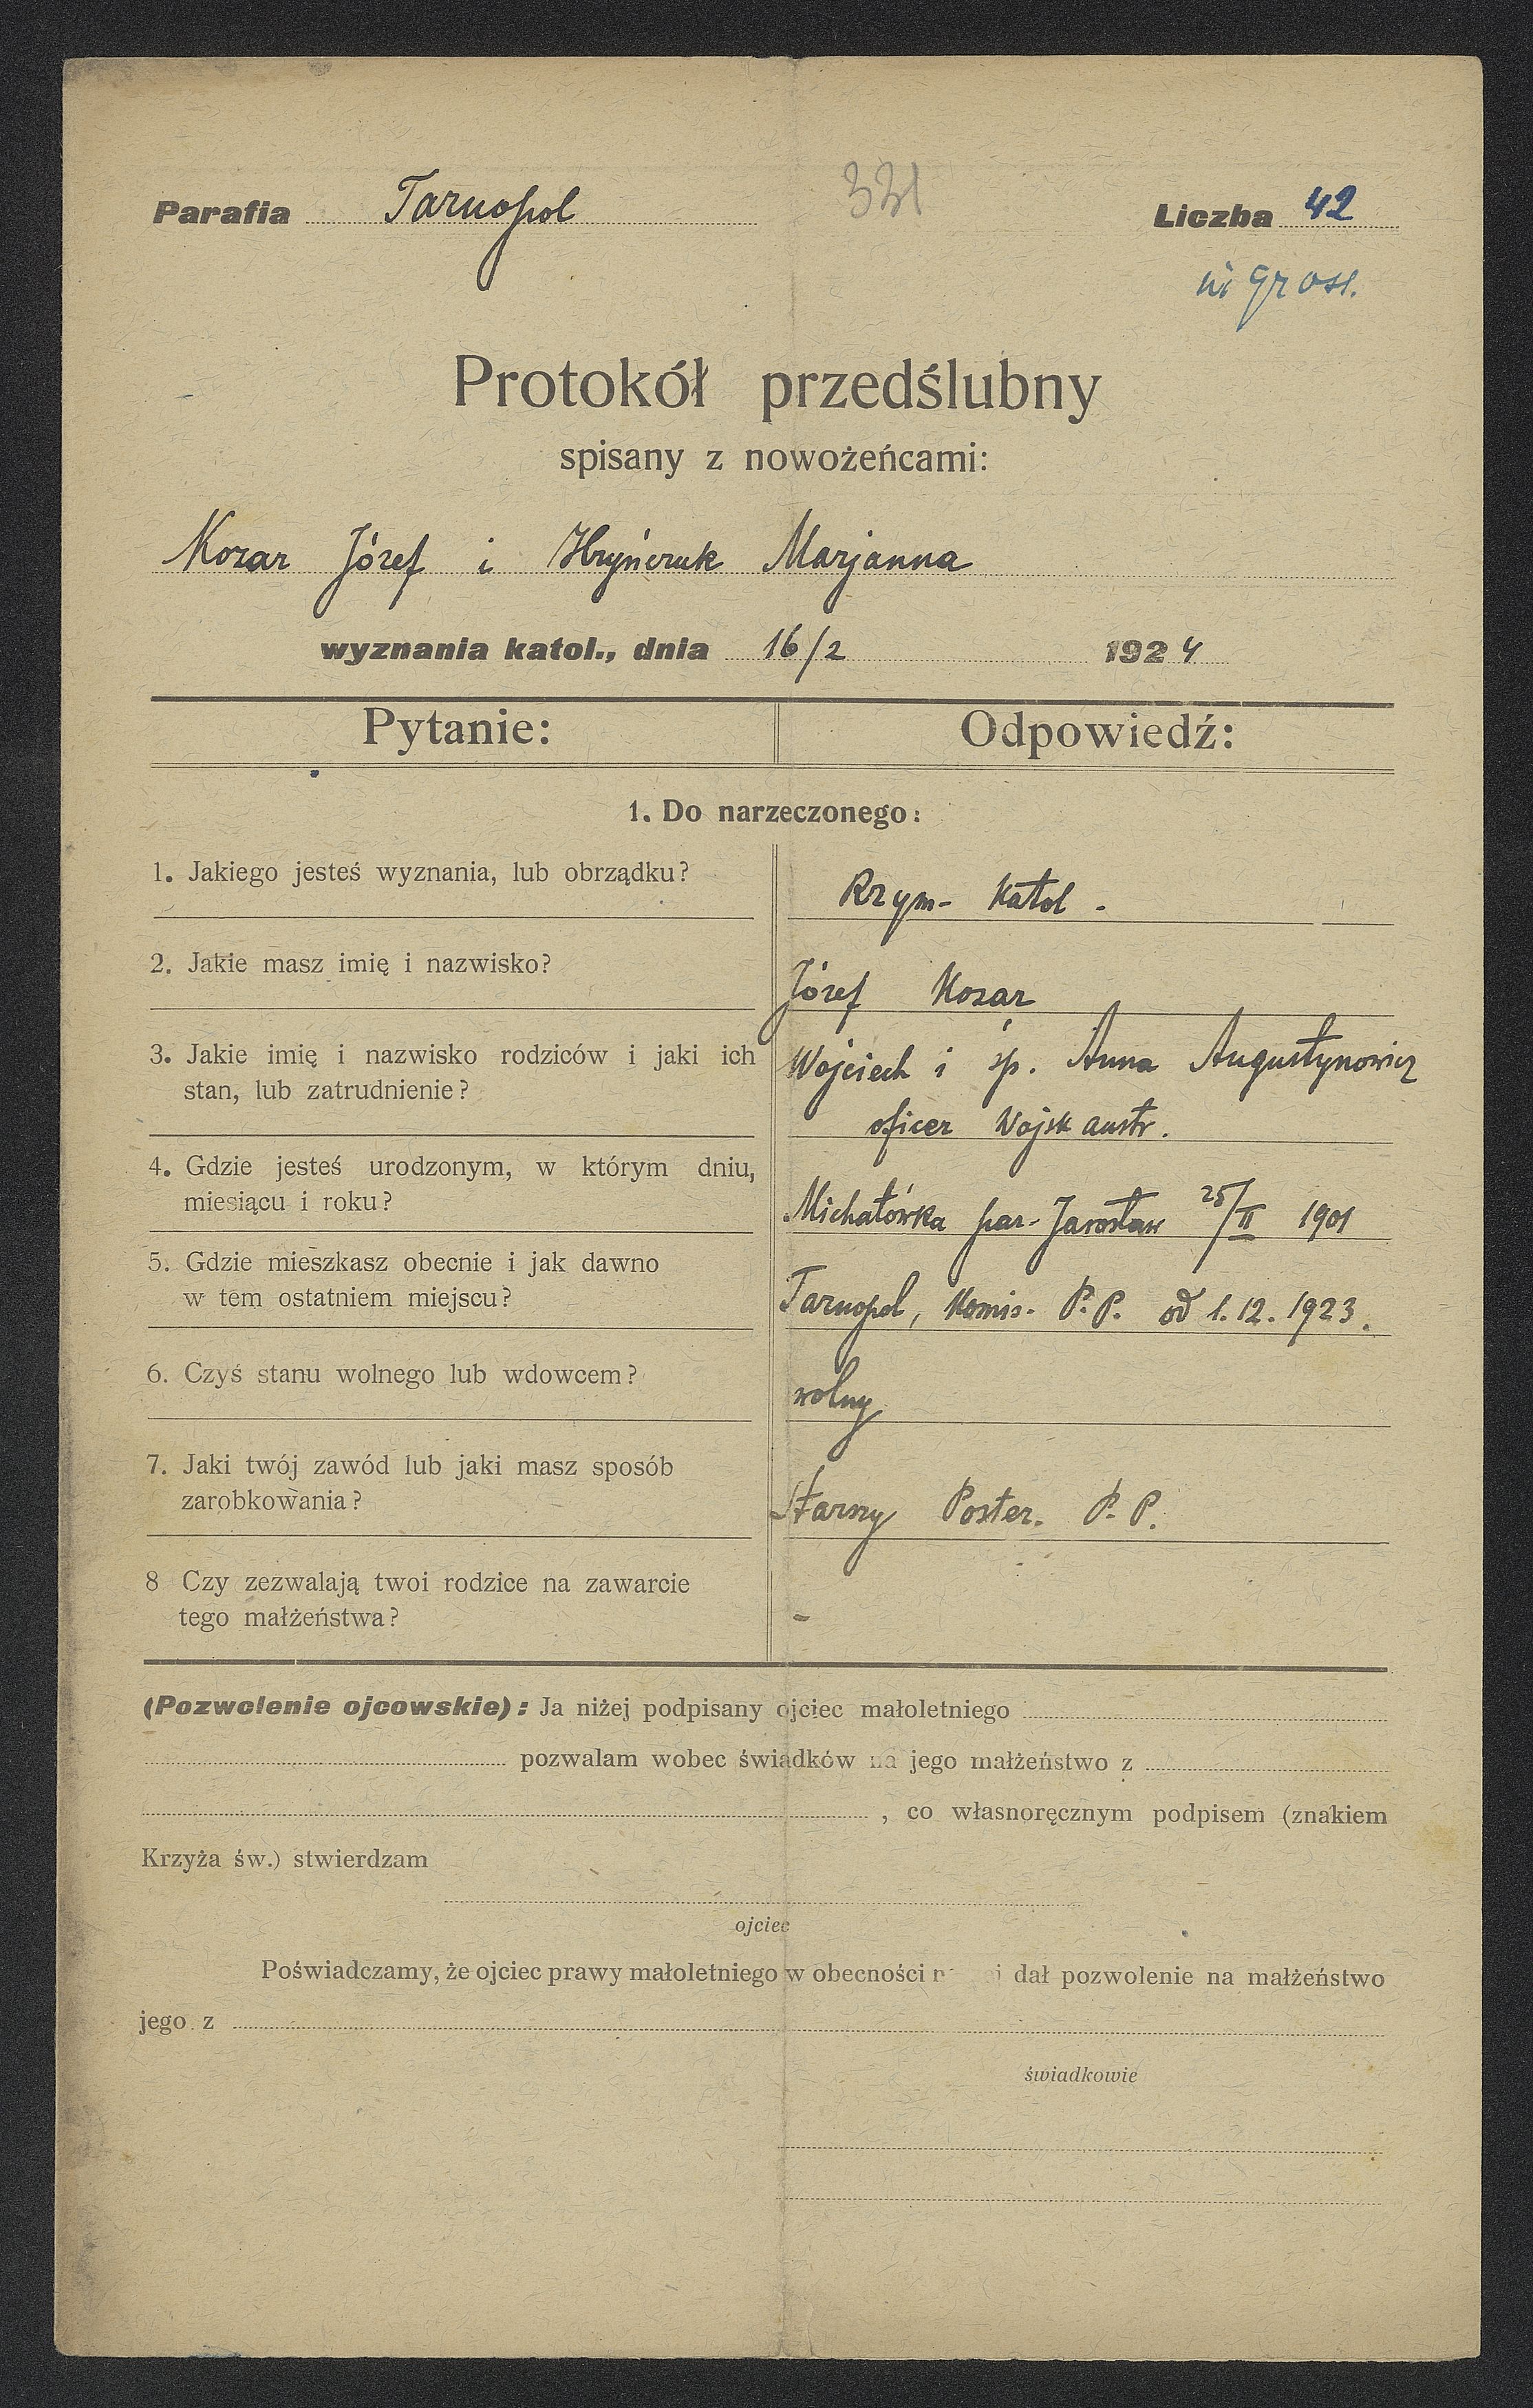 Parafia Tarnopol
331
Liczba 42
in gross.
Protokół przedślubny
spisany z nowożeńcami:
Kozar Józef i Hryńczuk Marjanna
wyznania katol., dnia 16/2 1924
Pytanie: Odpowiedź:
1. Do narzeczonego:
1. Jakiego jesteś wyznania, lub obrządku?
Rzym- katol -
2. Jakie masz imię i nazwisko?
Józef Kozar
3. Jakie imię i nazwisko rodziców i jaki ich
stan, lub zatrudnienie?
Wojciech i śp. Anna Augustynowicz
oficer Wojsk austr.
4. Gdzie jesteś urodzonym, w którym dniu,
miesiącu i roku?
Michałówka par- Jarosław 25/II 1901
5. Gdzie mieszkasz obecnie i jak dawno
w tem ostatniem miejscu?
Tarnopol, Komis- P.P. od 1.12.1923.
6. Czyś stanu wolnego lub wdowcem?
wolny
7. Jaki twój zawód lub jaki masz sposób
zarobkowania?
Starszy Poster. P.P.
8 Czy zezwalają twoi rodzice na zawarcie
tego małżeństwa?
-
(Pozwolenie ojcowskie): Ja niżej podpisany ojciec małoletniego
pozwalam wobec świadków na jego małżeństwo z
, co własnoręcznym podpisem (znakiem
Krzyża św.) stwierdzam
ojciec
Poświadczamy, że ojciec prawy małoletniego w obecności dał pozwolenie na małżeństwo
jego z
świadkowie